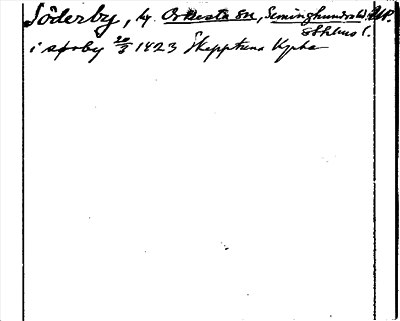 Söderby, by Orkesta sn, Seminghundra hd, Upl.
Sthlms l.
i søroby 20/3 1423 Skepptuna Kyrka